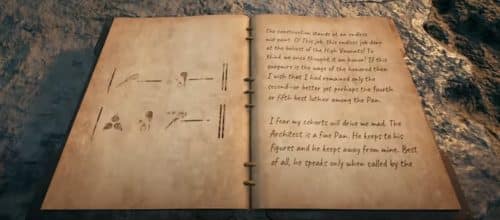 The construction stands at an endless
mid point. O! This job, this endless job done
at the behest of the High Vaunts! To
think we once thought it an honor! If this
purguire is the ways of the honored then
I wish that I had remained only the
second-or better yet perhaps the fourth
or fifth best luther among the Pan.
I fear my cohorts will drive me mad. The
Architect is a fine Pan. He keeps to his
figures and he keeps away from mine. Best
of all, he speaks only when called by the